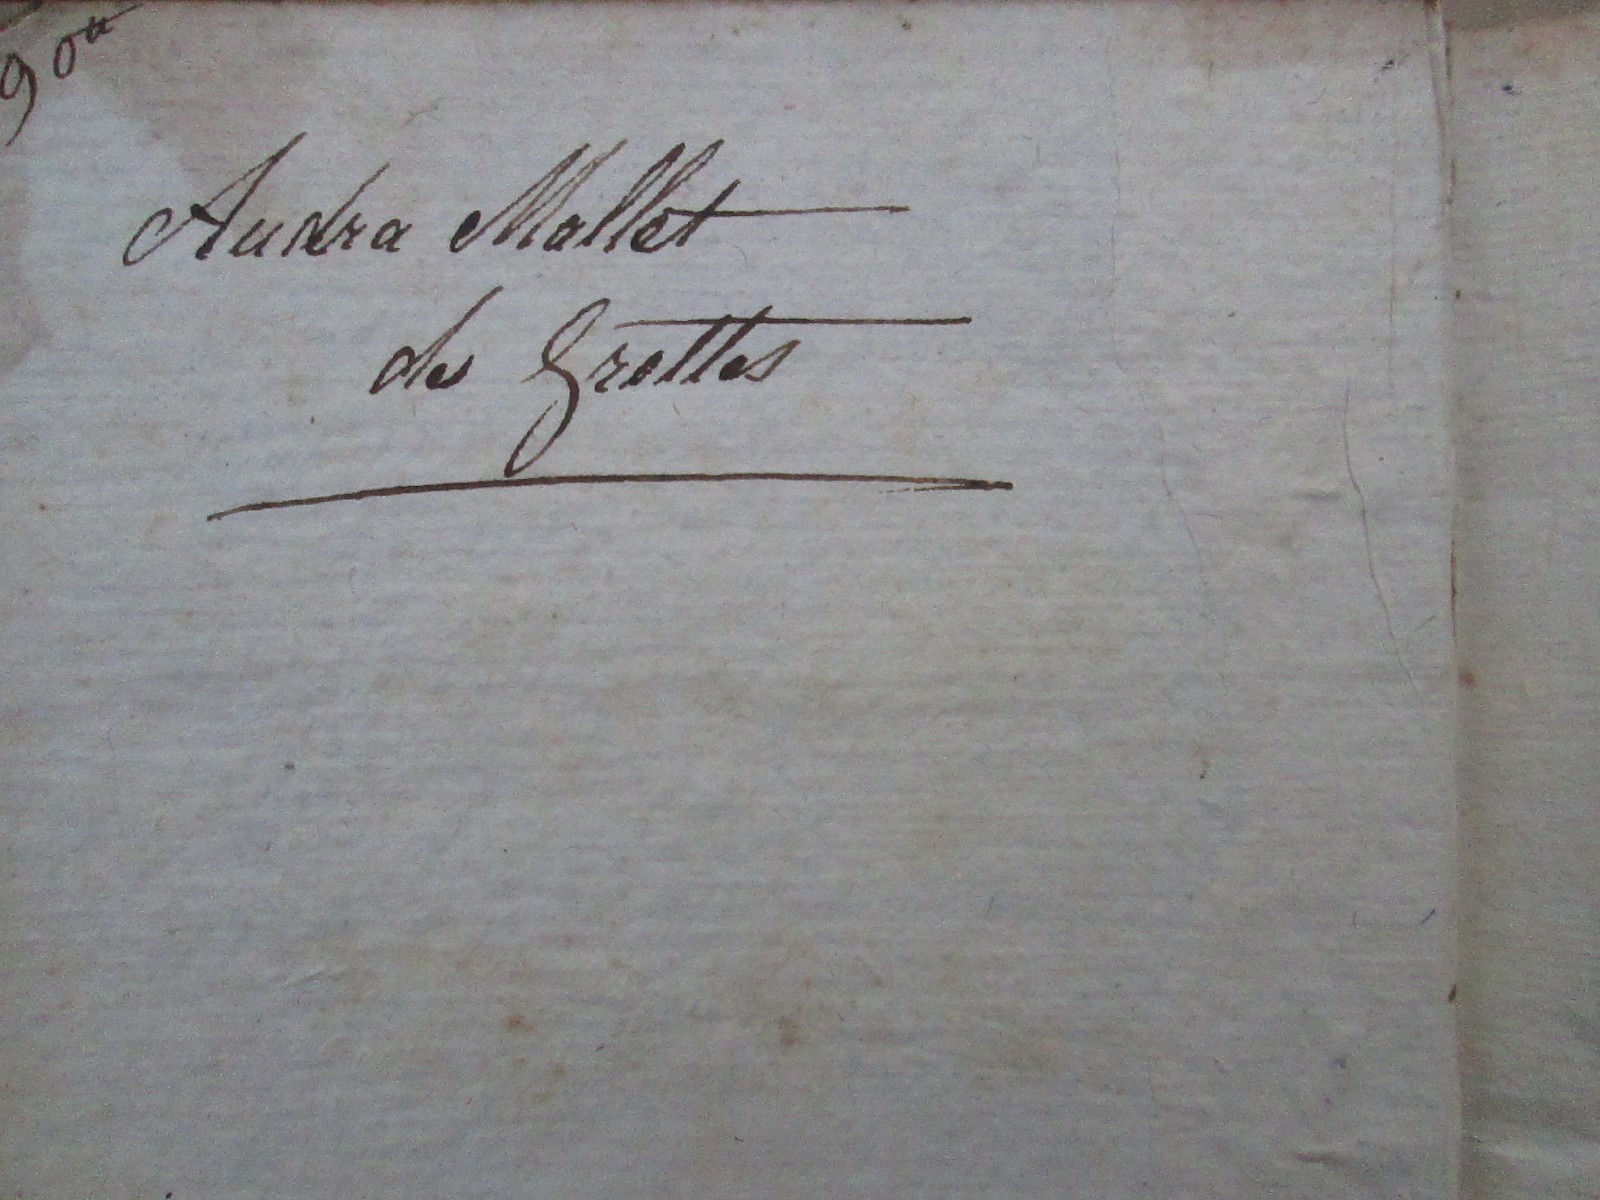 90tt
Audra Mallet
de Grottes